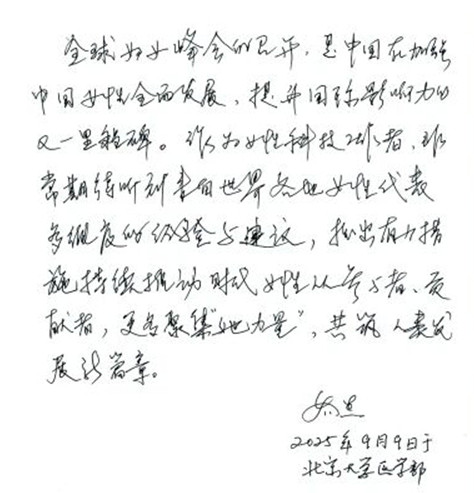 全球妇女峰会的召开，是中国在加强
中国女性全面发展、提升国际影响力的
又一里程碑。作为女性科技工作者，非
常期待听到来自世界各地女性代表
多维度的经验与建议，拟出有力措
施持续推动时代女性从参与者、贡
献者，更多聚集“她力量”，共筑人类发
展新篇章。
乔杰
2025年9月9日于
北京大学医学部